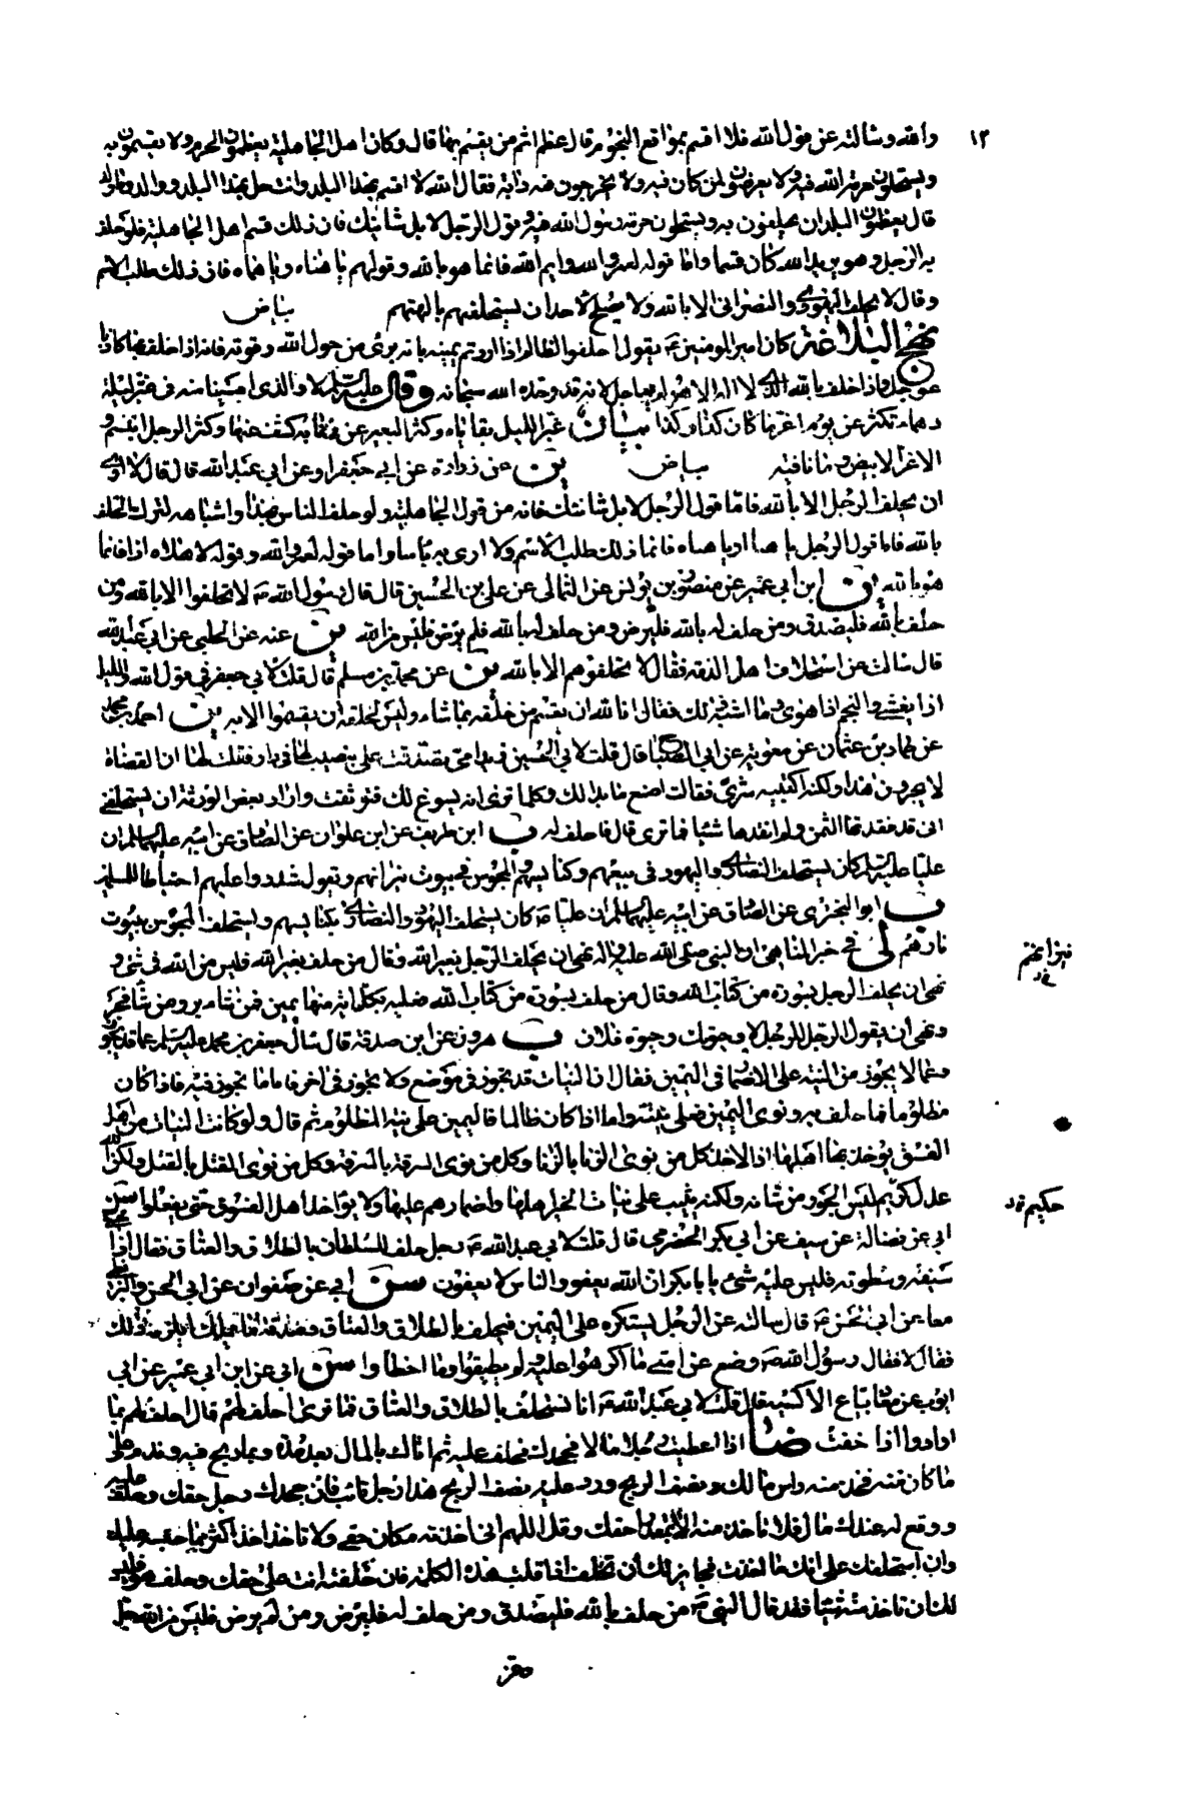 ١٣
وأمته وسألته عن قول الله فلا اقسم بمواقع النجوم قال عظم اثم من يقسم بها قال وكان اهل الجاهلية يعظمون الحرم ولا يقسمون به
ويستحلون حرمة الله فيه ولا يعرضون لمن كان فيه ولا يخرجون منه دابة فقال الله لا اقسم بهذا البلد وانت حل بهذا البلد ووالد وما ولد
قال يعظمون البلد ان يحلفون به ويستحلون حرمة رسول الله فيه وقول الرجل لا بل شانئك فان ذلك قسم اهل الجاهلية فلو حلف
به الرجل وهو يريد الله كان قسما واما قوله لعمرو الله وايم الله فانما هو بالله وقولهم يا هناه ويا هماه فان ذلك طلب الاسم
وقال لا يحلف اليهودي والنصراني الا بالله ولا يصلح لاحد ان يستحلفهم بالهتهم بياض
نهج البلاغة كان امير المومنين ع يقول احلفوا الظالم اذا اردتم يمينه بانه برئ من حول الله وقوته فانه اذا حلف بها كاذبا
عوجل واذا حلف بالله الذي لا اله الا هو لم يعاجل لانه قد وحد الله سبحانه وقال عليه السلم لا والذي امسينا منه في غبر ليلة
دهماء تكشر عن يوم اغر ما كان كذا وكذا بيان غبر الليل بقاياه وكشر البعير عن نابه كشف عنها وكشر الرجل ابتسم و
الاغر الابيض وما نافية بياض ين عن زرارة عن ابي جعفر او عن ابي عبد الله قال قال لا ارى
ان يحلف الرجل الا بالله فاما قول الرجل لا بل شانئك فانه من قول الجاهلية ولو حلف الناس بهذا واشباهه لترك الحلف
بالله فاما قول الرجل يا هنا او يا هماه فانما ذلك طلب الاسم ولا ارى به باسا واما قوله لعمر والله وقوله لا هلاه اذا فانما
هو بالله ين ابن ابي عمير عن منصور بن يونس عن الثمالى عن علي بن الحسين قال قال رسول الله ص لا تحلفوا الا بالله ومن
حلف بالله فليصدق ومن حلف له بالله فليرض ومن حلف له بالله فلم يرض فليس من الله ين عنه عن الحلبي عن ابي عبد الله
قال سالت عن استحلاف اهل الذمة فقال لا تحلفوهم الا بالله ين عن محمد بن مسلم قال قلت لابي جعفر في قول الله والليل
اذا يغشى والنجم اذا هوى وما اشبه ذلك فقال ان لله ان يقسم من خلقه بما شاء وليس لخلقه ان يقسموا الا به ين احمد بن محمد
عن حماد بن عثمان عن معوية عن ابي الصباح قال قلت لابي الحسين ان امي تصدقت علي بنصيب لها في دار فقلت لها ان القضاة
لا يجيزون هذا ولكن اكتبيه شرى فقالت اصنع ما بدا لك وكلما ترى انه يسوغ لك فتوثقت واراد بعض الورثة ان يستحلفني
انى قد نقدتها الثمن ولم انقدها شيئا فما ترى قال فاحلف له ب ابن طريف عن ابن علوان عن الصادق عن ابيه عليهما السلم ان
عليا عليه السلم كان يستحلف النصارى واليهود في بيعهم وكنايسهم والمجوس في بيوت نيرانهم ويقول شددوا عليهم احتياطا للمسلمين
ب ابو البختري عن الصادق عن ابيه عليهما السلم ان عليا ع كان يستحلف اليهود والنصارى بكنايسهم ويستحلف المجوس ببيوت
نارهم لى في خبر المناهي ان النبي صلى الله عليه واله نهى ان يحلف الرجل بغير الله وقال من حلف بغير الله فليس من الله في شئ و
نهى ان يحلف الرجل بسورة من كتاب الله وقال من حلف بسورة من كتاب الله فعليه بكل اية منها يمين فمن شاء بر ومن شاء فجر
ونهى ان يقول الرجل للرجل لا وحيوتك وحيوة فلان ب هرون عن ابن صدقة قال سال جعفر بن محمد عليه السلم عما قد يجوز
وعما لا يجوز من النية على الاضمار في اليمين فقال ان النيات قد تجوز في موضع ولا تجوز في اخر فاما ما تجوز فيه فاذا كان
مظلوما فما حلف به ونوى اليمين فعلى نيته واما اذا كان ظالما فاليمين على نية المظلوم ثم قال ولو كانت النيات من اهل
الفسق يؤخذ بها اهلها اذا لاخذ كل من نوى الزنا بالزنا وكل من نوى السرقة بالسرقة وكل من نوى القتل بالقتل ولكن الله
عدل كريم ليس الجور من شانه ولكنه يثيب على نيات الخير اهلها واضمارهم عليها ولا يؤاخذ اهل الفسوق حتى يفعلوا سن
ابي عن فضالة عن سيف عن ابي بكر الحضرمي قال قلت لابي عبد الله ع رجل حلف للسلطان بالطلاق والعتاق فقال اذا خشي
سيفه وسطوته فليس عليه شئ يا با بكر ان الله يعفو والناس لا يعفون سن ابي عن صفوان عن ابي الحسن والبزنطي
معا عن ابي الحسن ع قال سالته عن الرجل يستكره على اليمين فيحلف بالطلاق والعتاق وصدقة ما يملك ايلزمه ذلك
فقال لا فقال رسول الله ص وضع عن امتي ما اكرهوا عليه ولم يطيقوا وما اخطاوا سن ابي عن ابن ابي عمير عن ابي
ايوب عن معاذ بياع الاكسية قال قلت لابي عبد الله ع انا نستحلف بالطلاق والعتاق فما ترى احلف لهم قال احلف لهم بما
ارادوا اذا خفت ضا اذا اعطيت رجلا مالا فجحدك فحلف عليه ثم اتاك بالمال بعد مدة وبما ربح فيه وندم على
ما كان منه فخذ منه راس مالك ونصف الربح ورد عليه نصف الربح هذا رجل تائب فان جحدك رجل حقك وحلف عليه
ووقع له عندك مال فلا تاخذ منه الا بقدر حقك وقل اللهم اني اخذته مكان حقي ولا تاخذ اكثر مما حبسه عليك
وان استحلفك على انك ما اخذت فجايز لك ان تحلف اذا قلت هذه الكلمة فان حلفته انت على حقك وحلف هو فليس
لك ان تاخذ منه شيئا فقد قال النبي ص من حلف بالله فليصدق ومن حلف له فليرض ومن لم يرض فليس من الله جل
حكيم خ د